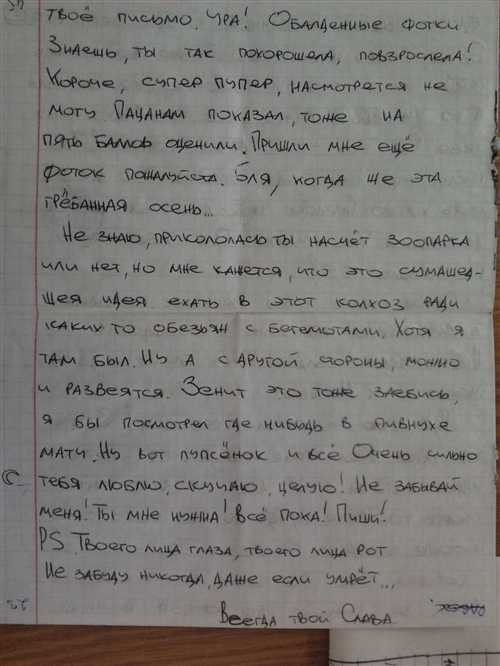 твоё письмо. Ура! Обалденные фотки.
Знаешь, ты так похорошела, повзрослела!
Короче, супер пупер, насмотрется не
могу. Пацанам показал, тоже на
пять баллов оценили. Пришли мне ещё
фоток пожалуйста. Бля, когда же эта
грёбанная осень...
Не знаю, прикололась ты насчёт зоопарка
или нет, но мне кажется, что это сумашед-
шея идея ехать в этот колхоз ради
каких то обезьян с бегемотами. Хотя я
там был. Ну а с другой стороны, можно
и развеятся. Зенит это тоже заебись,
я бы посмотрел где нибудь в пивнухе
матч. Ну вот пупсёнок и всё. Очень сильно
тебя люблю, скучаю, целую! Не забывай
меня! Ты мне нужна! Всё пока! Пиши!
PS. Твоего лица глаза, твоего лица рот
Не забуду никогда, даже если умрёт...
Всегда твой Слава.